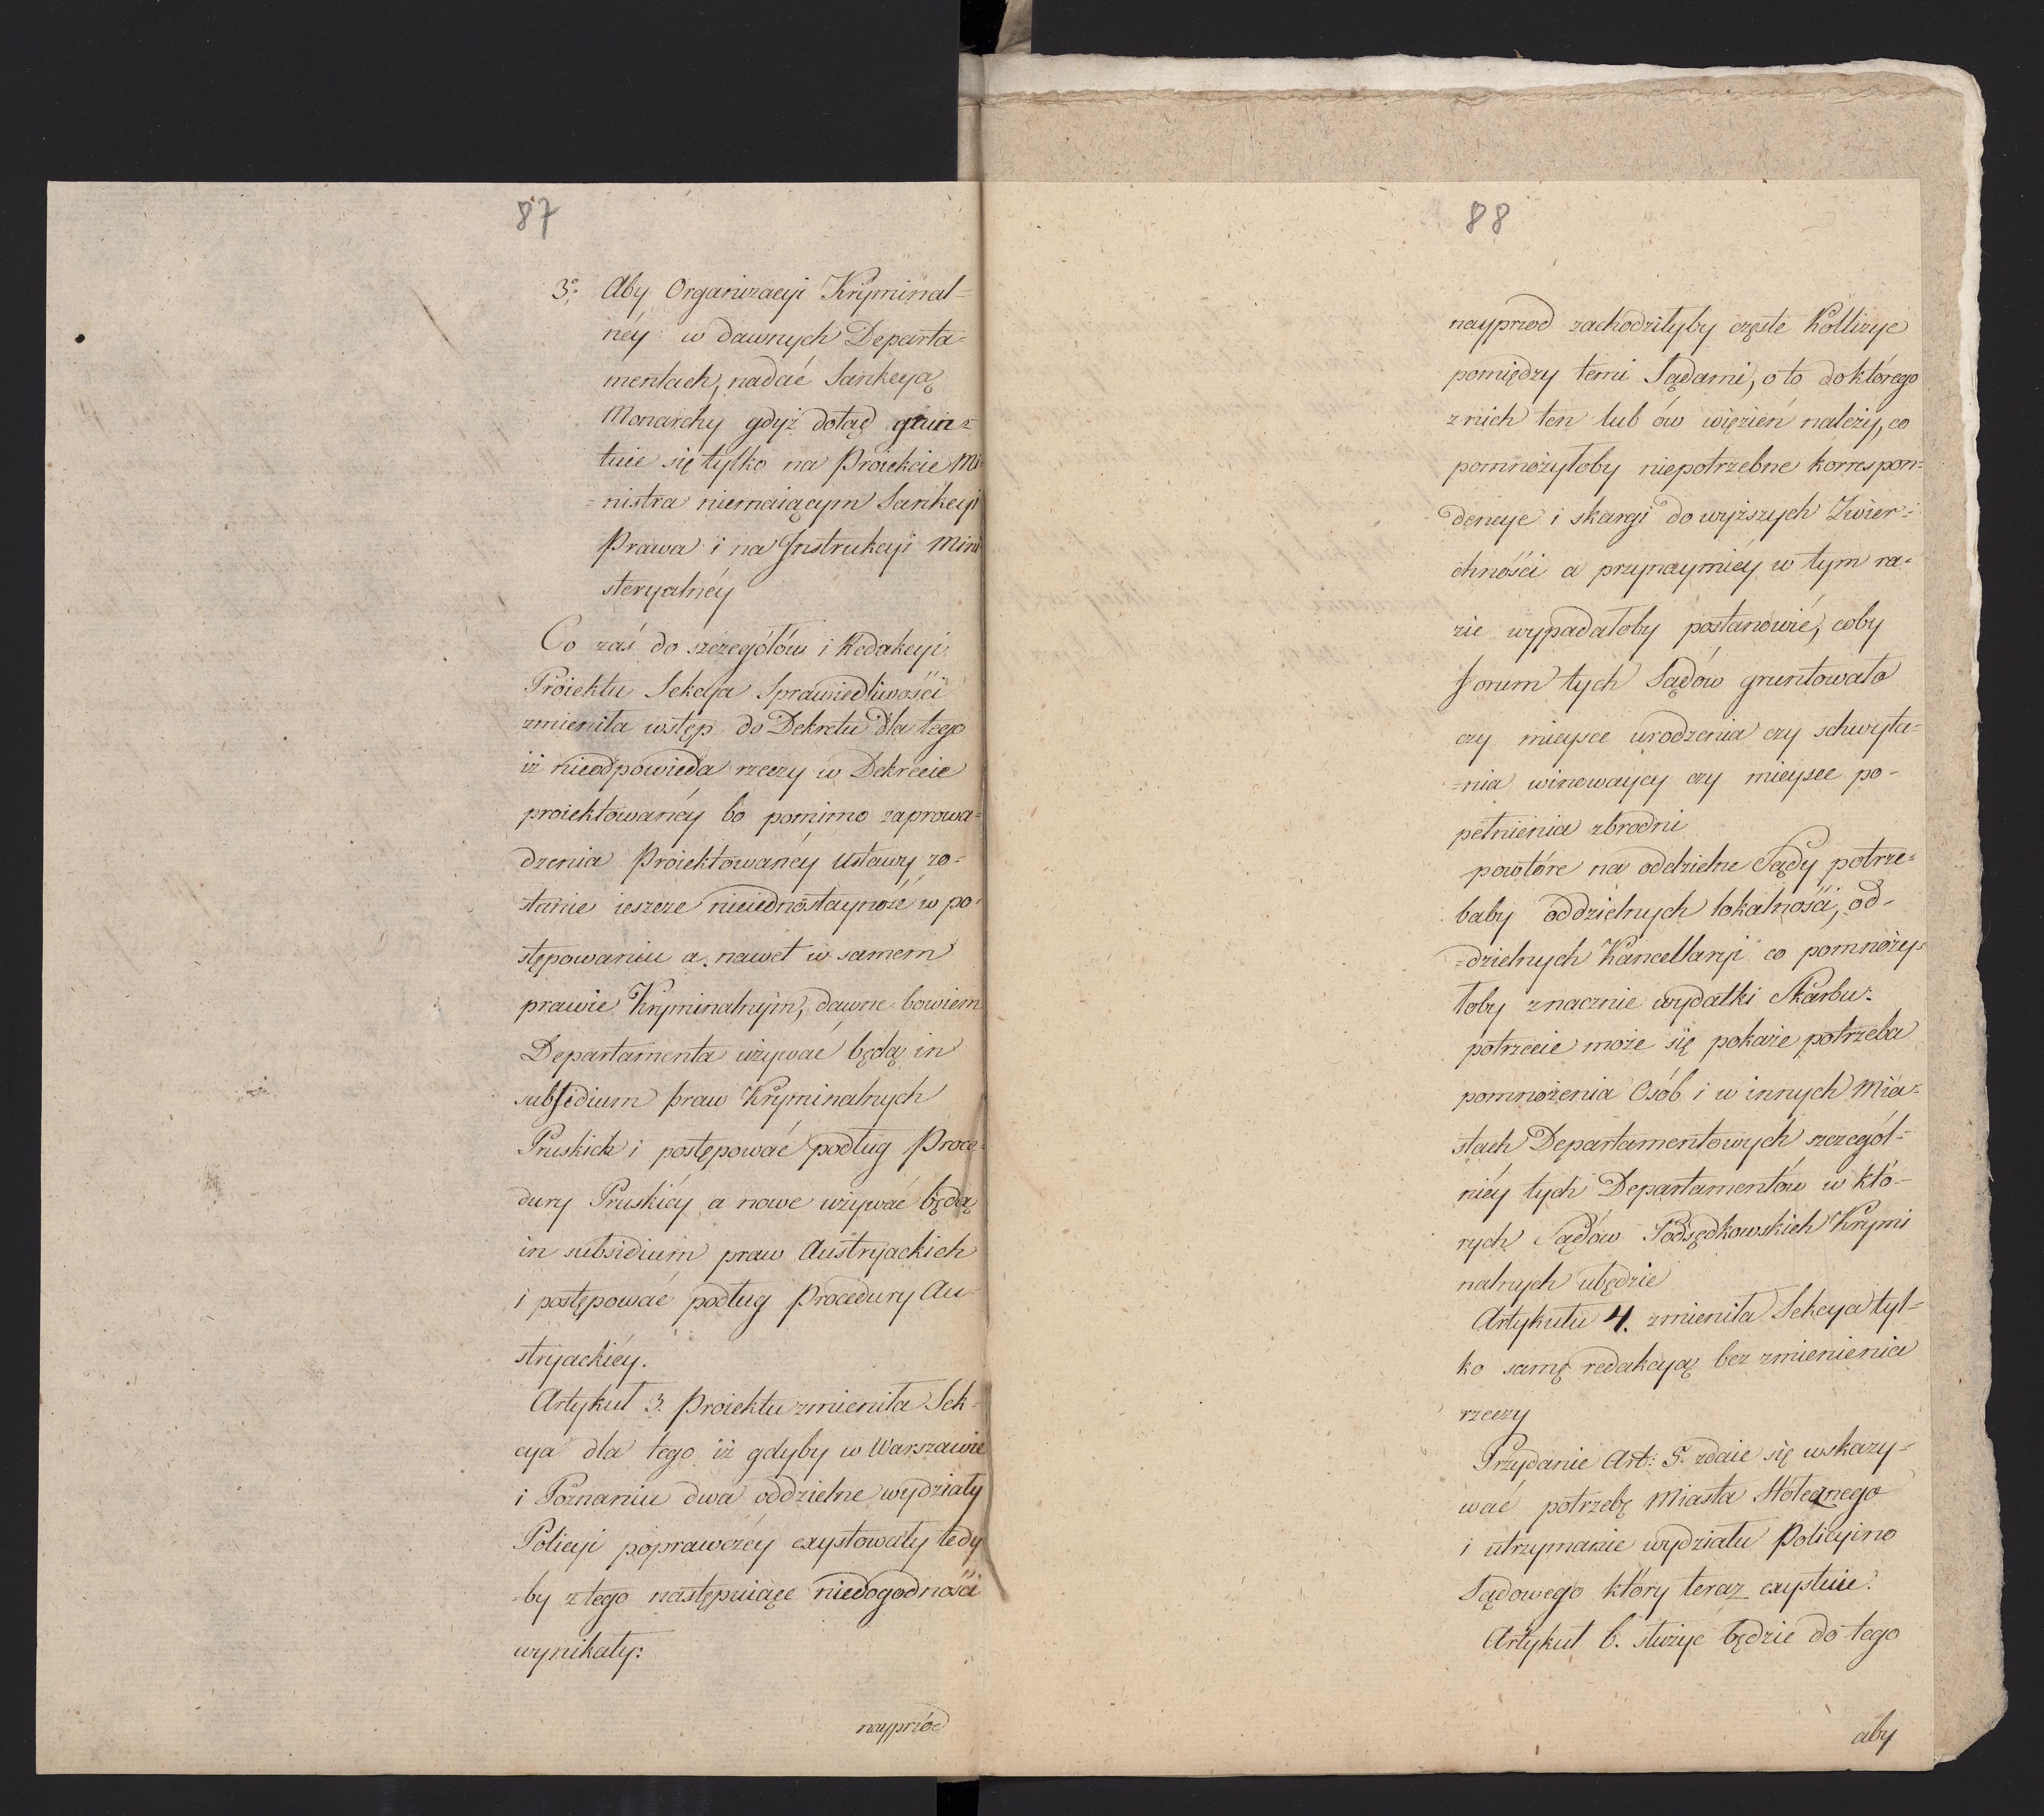 87
3º: Aby Organizacyi Kryminal=
ney w dawnych Departa=
mentach, nadać Sankcyą
Monarchy gdyż dotąd grun=
tuie się tylko na Proiekcie Mi=
=nistra niemaiącym Sankcyi
Prawa i na Instrukcyi Mini
steryalnéy
Co zaś do szczegółów i Redakcyi
Proiektu Sekcya Sprawiedliwości
zmieniła wstęp do Dekretu dla tego
iż nieodpowieda rzeczy w Dekrecie
proiektowanéy bo pomimo zaprowa=
dzenia Proiektowanéy Ustawy zo=
stanie ieszcze nieiednostayność w po=
stępowaniu a nawet w samem
prawie Kryminalnym, dawne bowiem
Departamenta używać będą in
subsidium praw Kryminalnych
Pruskich i postępować podług Proce=
dury Pruskiéy a nowe używać będą
in subsidium praw Austryackich
i postępować podług Procedury Au-
stryackiéy.
Artykuł 3. Proiektu zmieniła Sek-
cya dla tego iż gdyby w Warszawie
i Poznaniu dwa oddzielne wydziały
Policyi poprawczéy exystowały tedy
=by z tego następuiące niedogodności
wynikały:
nayprzód
88
nayprzod zachodziłyby częste Kollizye
pomiędzy temi Sądami, o to do którego
z nich ten lub ów więzień należy, co
pomnożyłoby niepotrzebne korrespon=
dencye i skargi do wyższych Zwier=
chności a przynaymiéy w tym ra=
zie wypadałoby postanowić, coby
Forum tych Sądów gruntowało
czy mieysce urodzenia czy schwyta=
=nia winowaycy czy mieysce po-
pełnienia zbrodni
powtóre na oddzielne Sądy potrze=
baby oddzielnych lokalności, od-
=dzielnych Kancellaryi co pomnoży=
łoby znacznie wydatki Skarbu.
potrzecie może się pokaże potrzeba
pomnożenia Osób i w innych Mia=
stach Departamentowych szczegól=
niéy tych Departamentów w któ-
rych Sądów Podsędkowskich Krymi
nalnych ubędzie
Artykułu 4. zmieniła Sekcya tyl=
ko samę redakcyą bez zmienienia
rzeczy
Przydanie Art: 5. zdaie się wskazy=
wać potrzebę Miasta Stołecznego
i utrzymanie wydziału Policyino
Sądowego który teraz exystuie.
Artykuł 6. służyć będzie do tego
aby